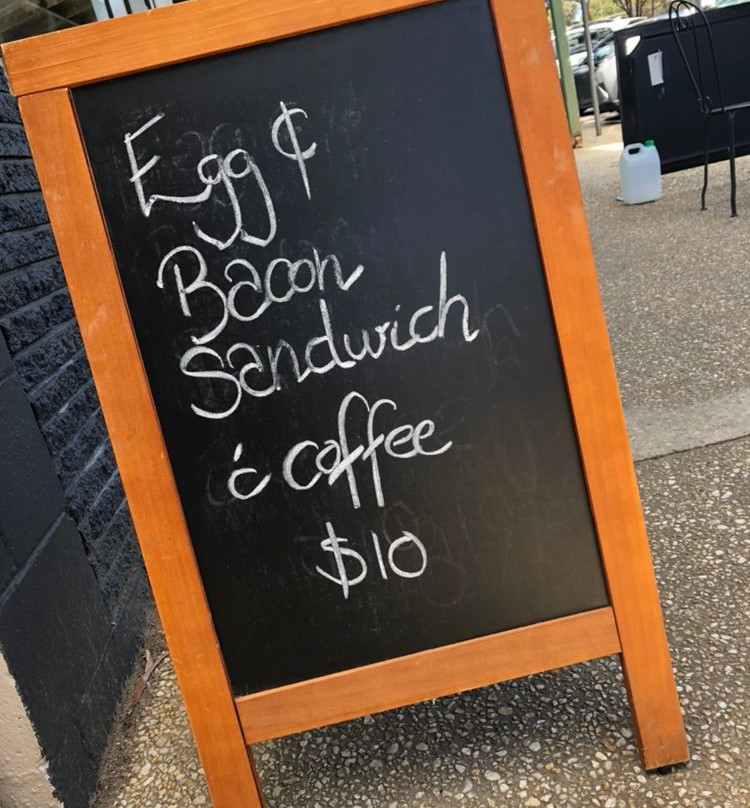 Egg ¢
Bacon
Sandwich
ċ coffee
$10